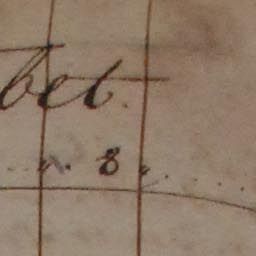 bet.
" 8 "